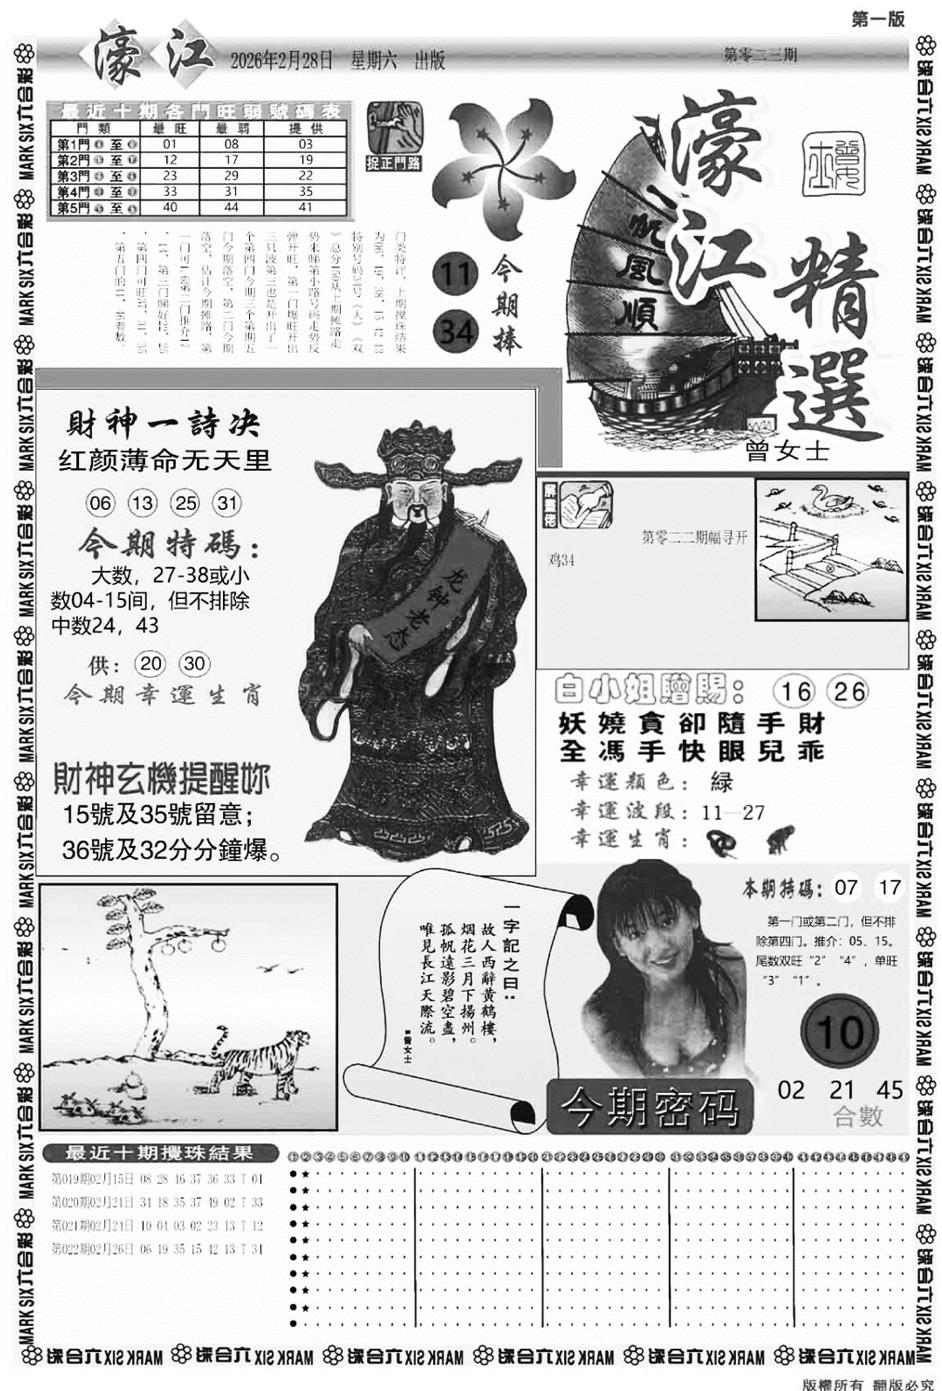 第一版
濠江
2026年2月28日 星期六 出版
第零二三期
最近十期各門旺弱號碼表
門類 最旺 最弱 提供
第1門 至 01 08 03
第2門 至 12 17 19
第3門 至 23 29 22
第4門 至 33 31 35
第5門 至 40 44 41
捉正門路
今期捧
11
34
濠江精選
一帆風順
曾女士
財神一詩决
红颜薄命无天里
06 13 25 31
今期特碼：
大数，27-38或小
数04-15间，但不排除
中数24，43
供： 20 30
今期幸運生肖
財神玄機提醒妳
15號及35號留意；
36號及32分分鐘爆。
龙钟老态
第零二二期幅寻开
鸡34
白小姐贈賜： 16 26
妖嬈貪卻隨手財
全馮手快眼兒乖
幸運顏色：緑
幸運波段：11—27
幸運生肖：
一字記之曰：
故人西辭黄鶴樓，
烟花三月下揚州。
孤帆遠影碧空盡，
唯見長江天際流。
曾女士
本期特碼： 07 17
第一门或第二门，但不排
除第四门。推介：05、15。
尾数双旺“2”“4”，单旺
“3”“1”。
10
今期密码
02 21 45
合數
最近十期攪珠結果
第019期02月15日 08 28 46 37 36 33 T 04
第020期02月21日 34 18 35 37 49 02 T 33
第021期02月24日 10 04 03 02 23 13 T 12
第022期02月26日 06 19 35 15 42 13 T 34
MARK SIX六合彩
版權所有 翻版必究